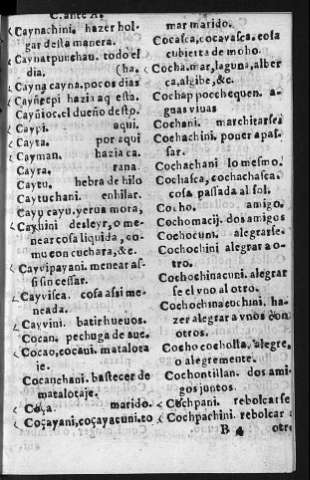 C. ante A.
Caynachini. hazer hol-
gar desta manera.
Caynatpunchau. todo el
dia. (ha.
Cayna cayna. pocos dias
Cayñecpi hazia aq esta.
Cayñioc. el dueño desto.
Caypi. aqui.
Cayta. por aqui
Cayman. hazia ca.
Cayra. rana.
Caytu. hebra de hilo
Caytuchani. enhilar.
Cayu cayu. yerua mora,
desleyr, o me-
near cosa liquida, co-
mo con cuchara, &c.
Cayvipayani. menear as-
si sin cessar.
Cayvisca. cosa assi me-
neada.
Cayvini. batir hueuos.
Cocan. pechuga de aue.
Cocao, cocaui. matalota
je.
Cocanchani. bastecer de
matalotaje.
Coça. marido.
Coçayani, coçayacuni. to
mar marido.
Cocasca, cocayasca. cosa
cubierta de moho.
Cocha. mar, laguna, alber
ca, algibe, &c.
Cochap pocchequen. a-
guas viuas
Cochani. marchitarse
Cochachini. poner a pas-
sar.
Cochachani lo mesmo.
Cochasca, cochachasca.
cosa passada al sol.
Cocho. amigo.
Cochomacij. dos amigos
Cochocuni. alegrarse.
Cochochini alegrar a o-
tro.
Cochochinacuni. alegrar
se el vno al otro.
Cochochinacuchini. ha-
zer alegrar a vnos con
otros.
Cocho cocholla. alegre,
o alegremente.
Cochontillan. dos ami-
gos juntos.
Cochpani. rebolcarse
Cochpachini. rebolcar a
B 4 otro